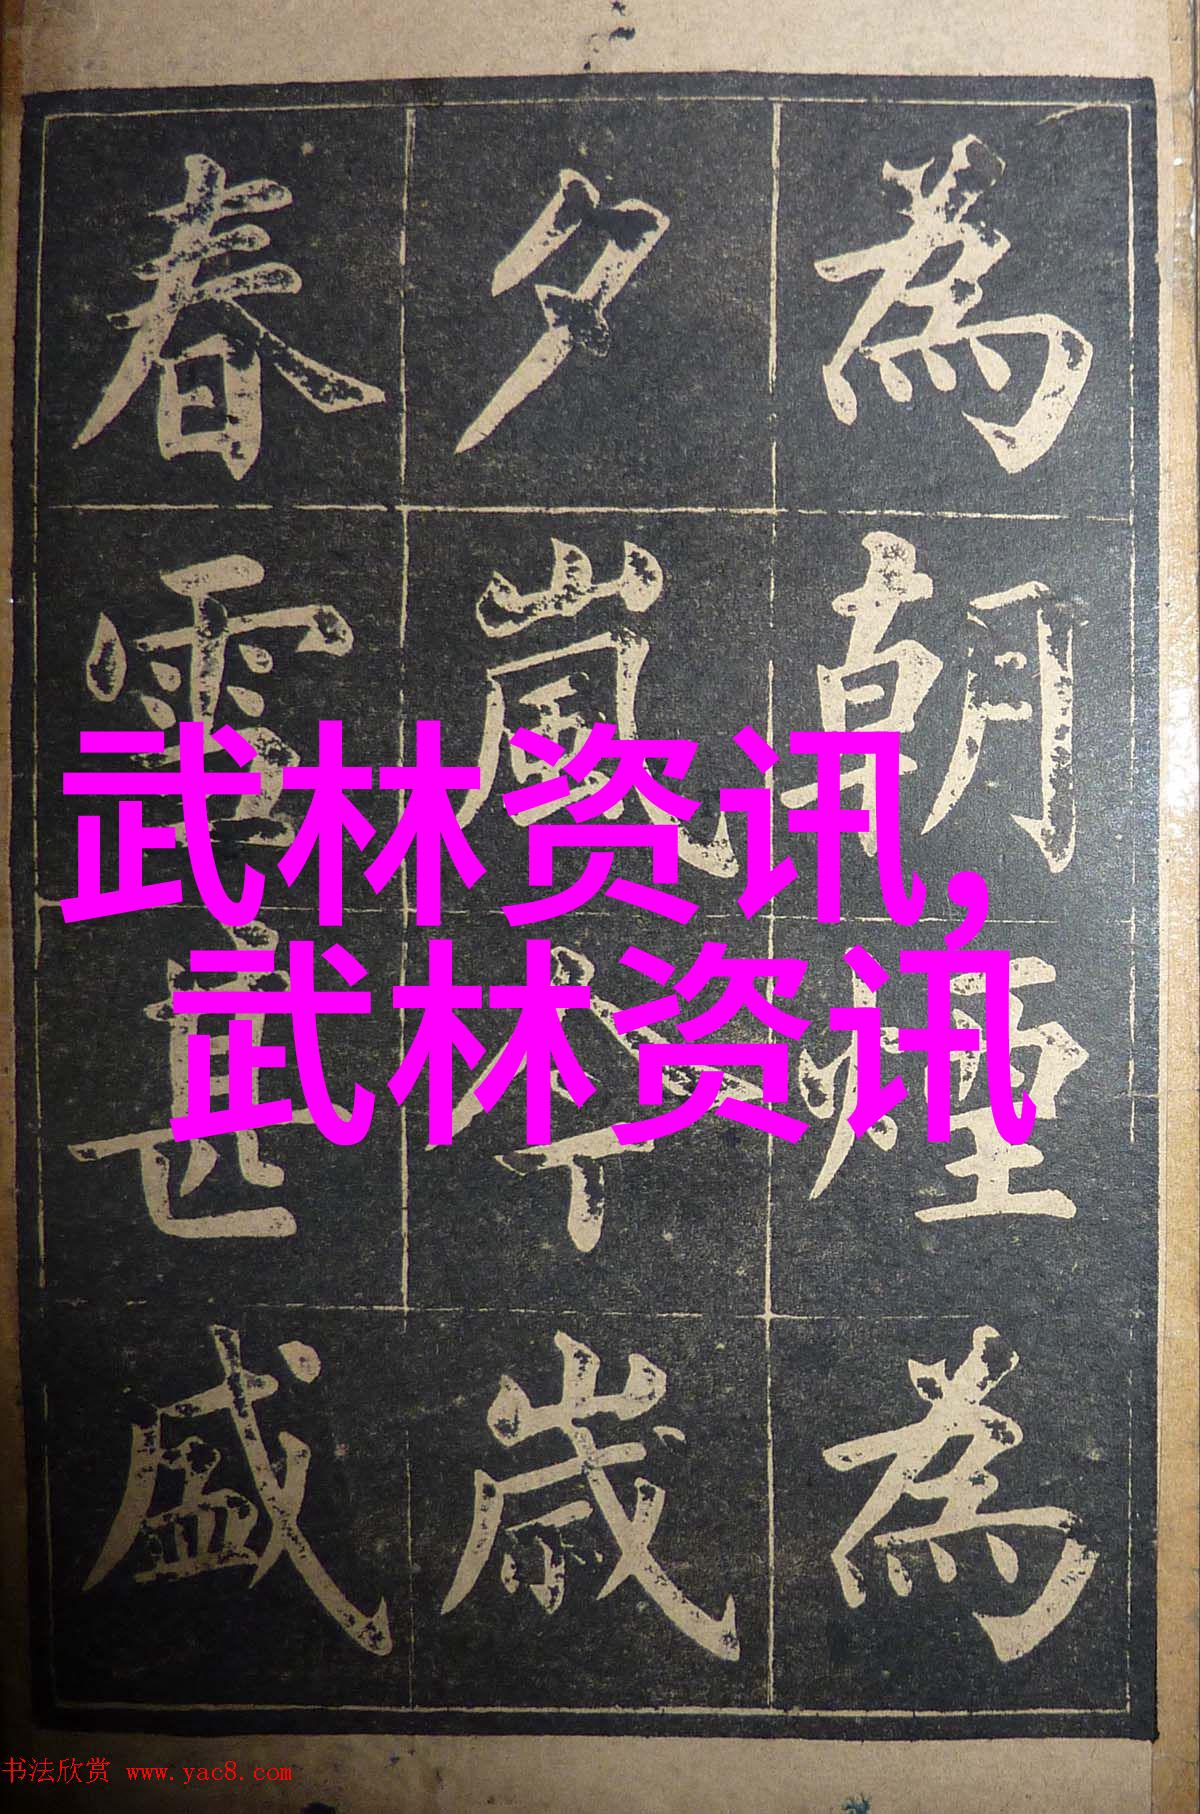 為朝煙為
夕嵐今歳
春雪甚盛
武林资讯,
武林资讯
书法欣赏 www.yac8.com